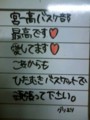 宮一高バスケ部
最高です♥
愛してます♥
これからも
ひたむきバスケットで
頑張って下さい。